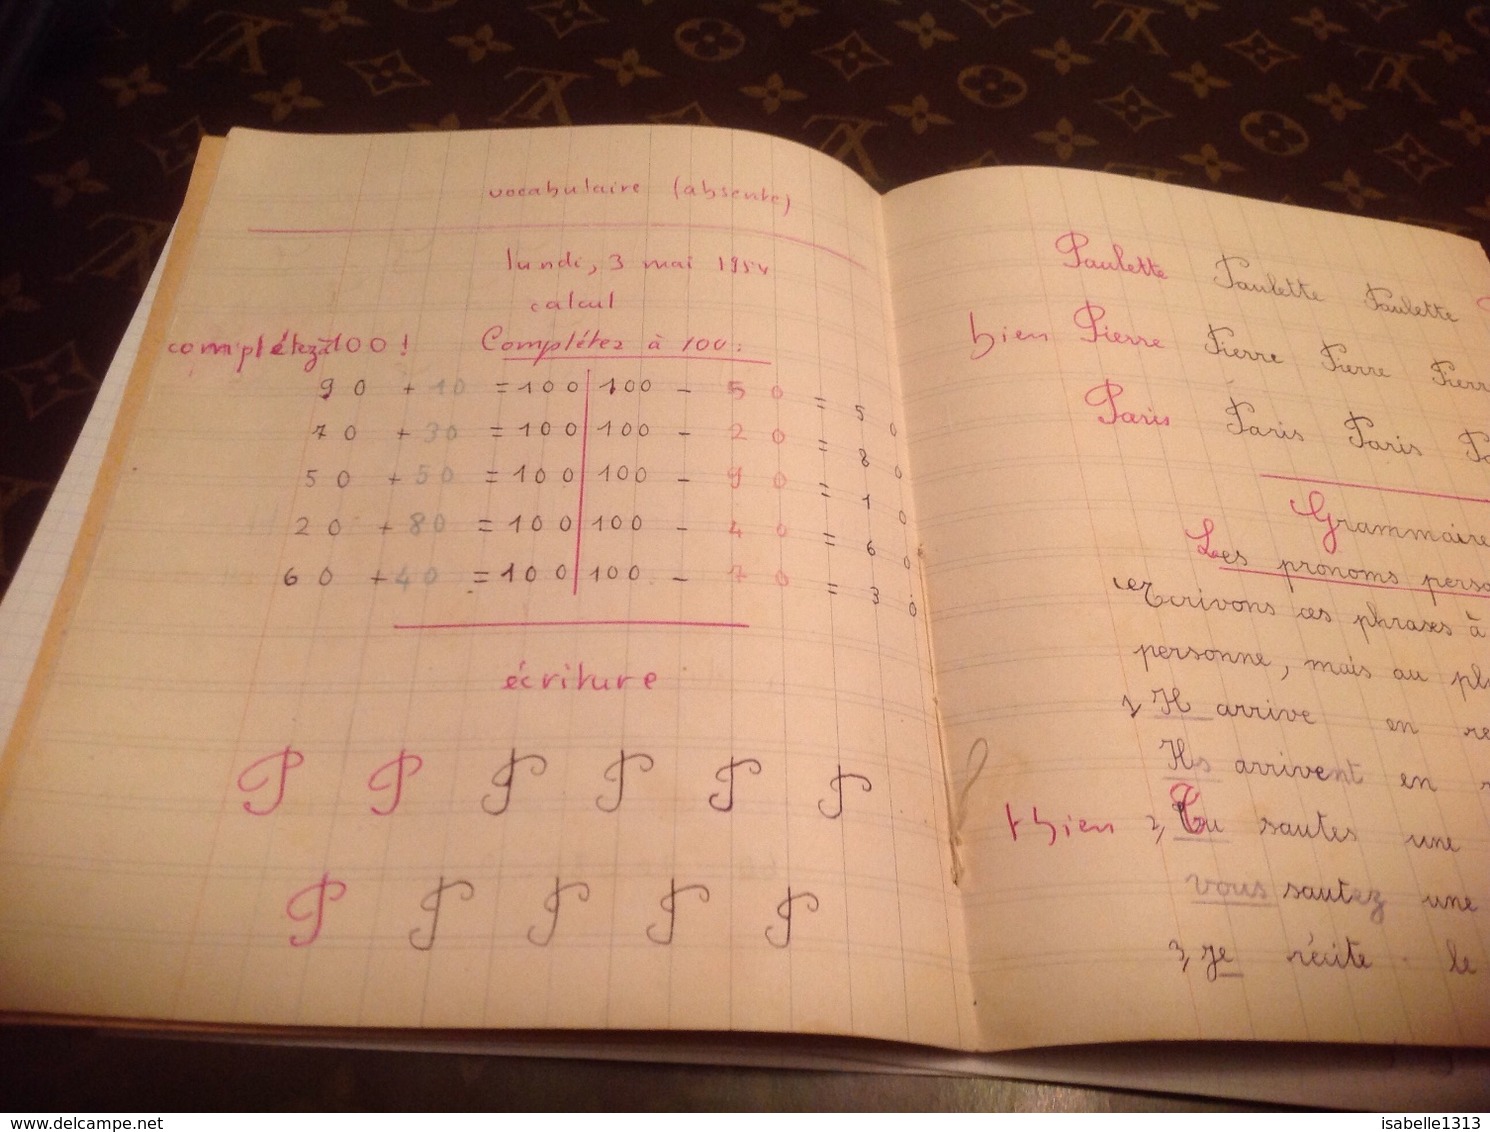 vocabulaire (absente)
lundi, 3 mai 1954
calcul
complétez à 100! Complétez à 100:
90 + 10 = 100 100 - 50 = 50
70 + 30 = 100 100 - 20 = 80
50 + 50 = 100 100 - 90 = 10
20 + 80 = 100 100 - 40 = 60
60 + 40 = 100 100 - 70 = 30
écriture
P P P P P P
P P P P P
Paulette Paulette Paulette
bien Pierre Pierre Pierre Pierr
Paris Paris Paris
Grammaire
Les pronoms perso
Ecrivons ces phrases à
personne, mais au pl
1, Il arrive en re
Ils arrivent en
t bien 2, Tu sautes une
vous sautez une
3, je récite le
www.delcampe.net
isabelle1313